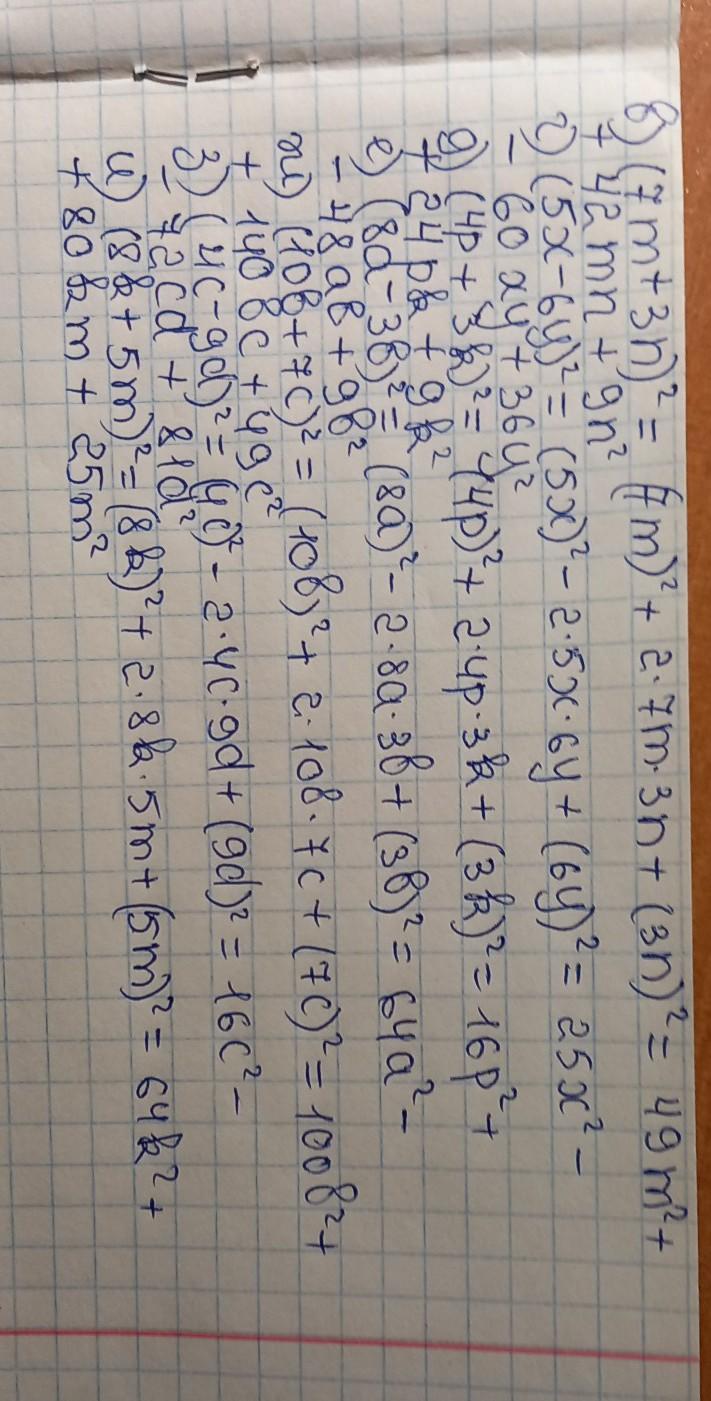 в) (7m+3n)² = (7m)² + 2·7m·3n + (3n)² = 49m² +
+ 42mn + 9n²
г) (5x-6y)² = (5x)² - 2·5x·6y + (6y)² = 25x² -
- 60xy + 36y²
д) (4p + 3k)² = (4p)² + 2·4p·3k + (3k)² = 16p² +
+ 24pk + 9k²
е) (8a-3b)² = (8a)² - 2·8a·3b + (3b)² = 64a² -
- 48ab + 9b²
ж) (10b + 7c)² = (10b)² + 2·10b·7c + (7c)² = 100b² +
+ 140bc + 49c²
з) (4c-9d)² = (4c)² - 2·4c·9d + (9d)² = 16c² -
- 72cd + 81d²
и) (8k + 5m)² = (8k)² + 2·8k·5m + (5m)² = 64k² +
+ 80km + 25m²